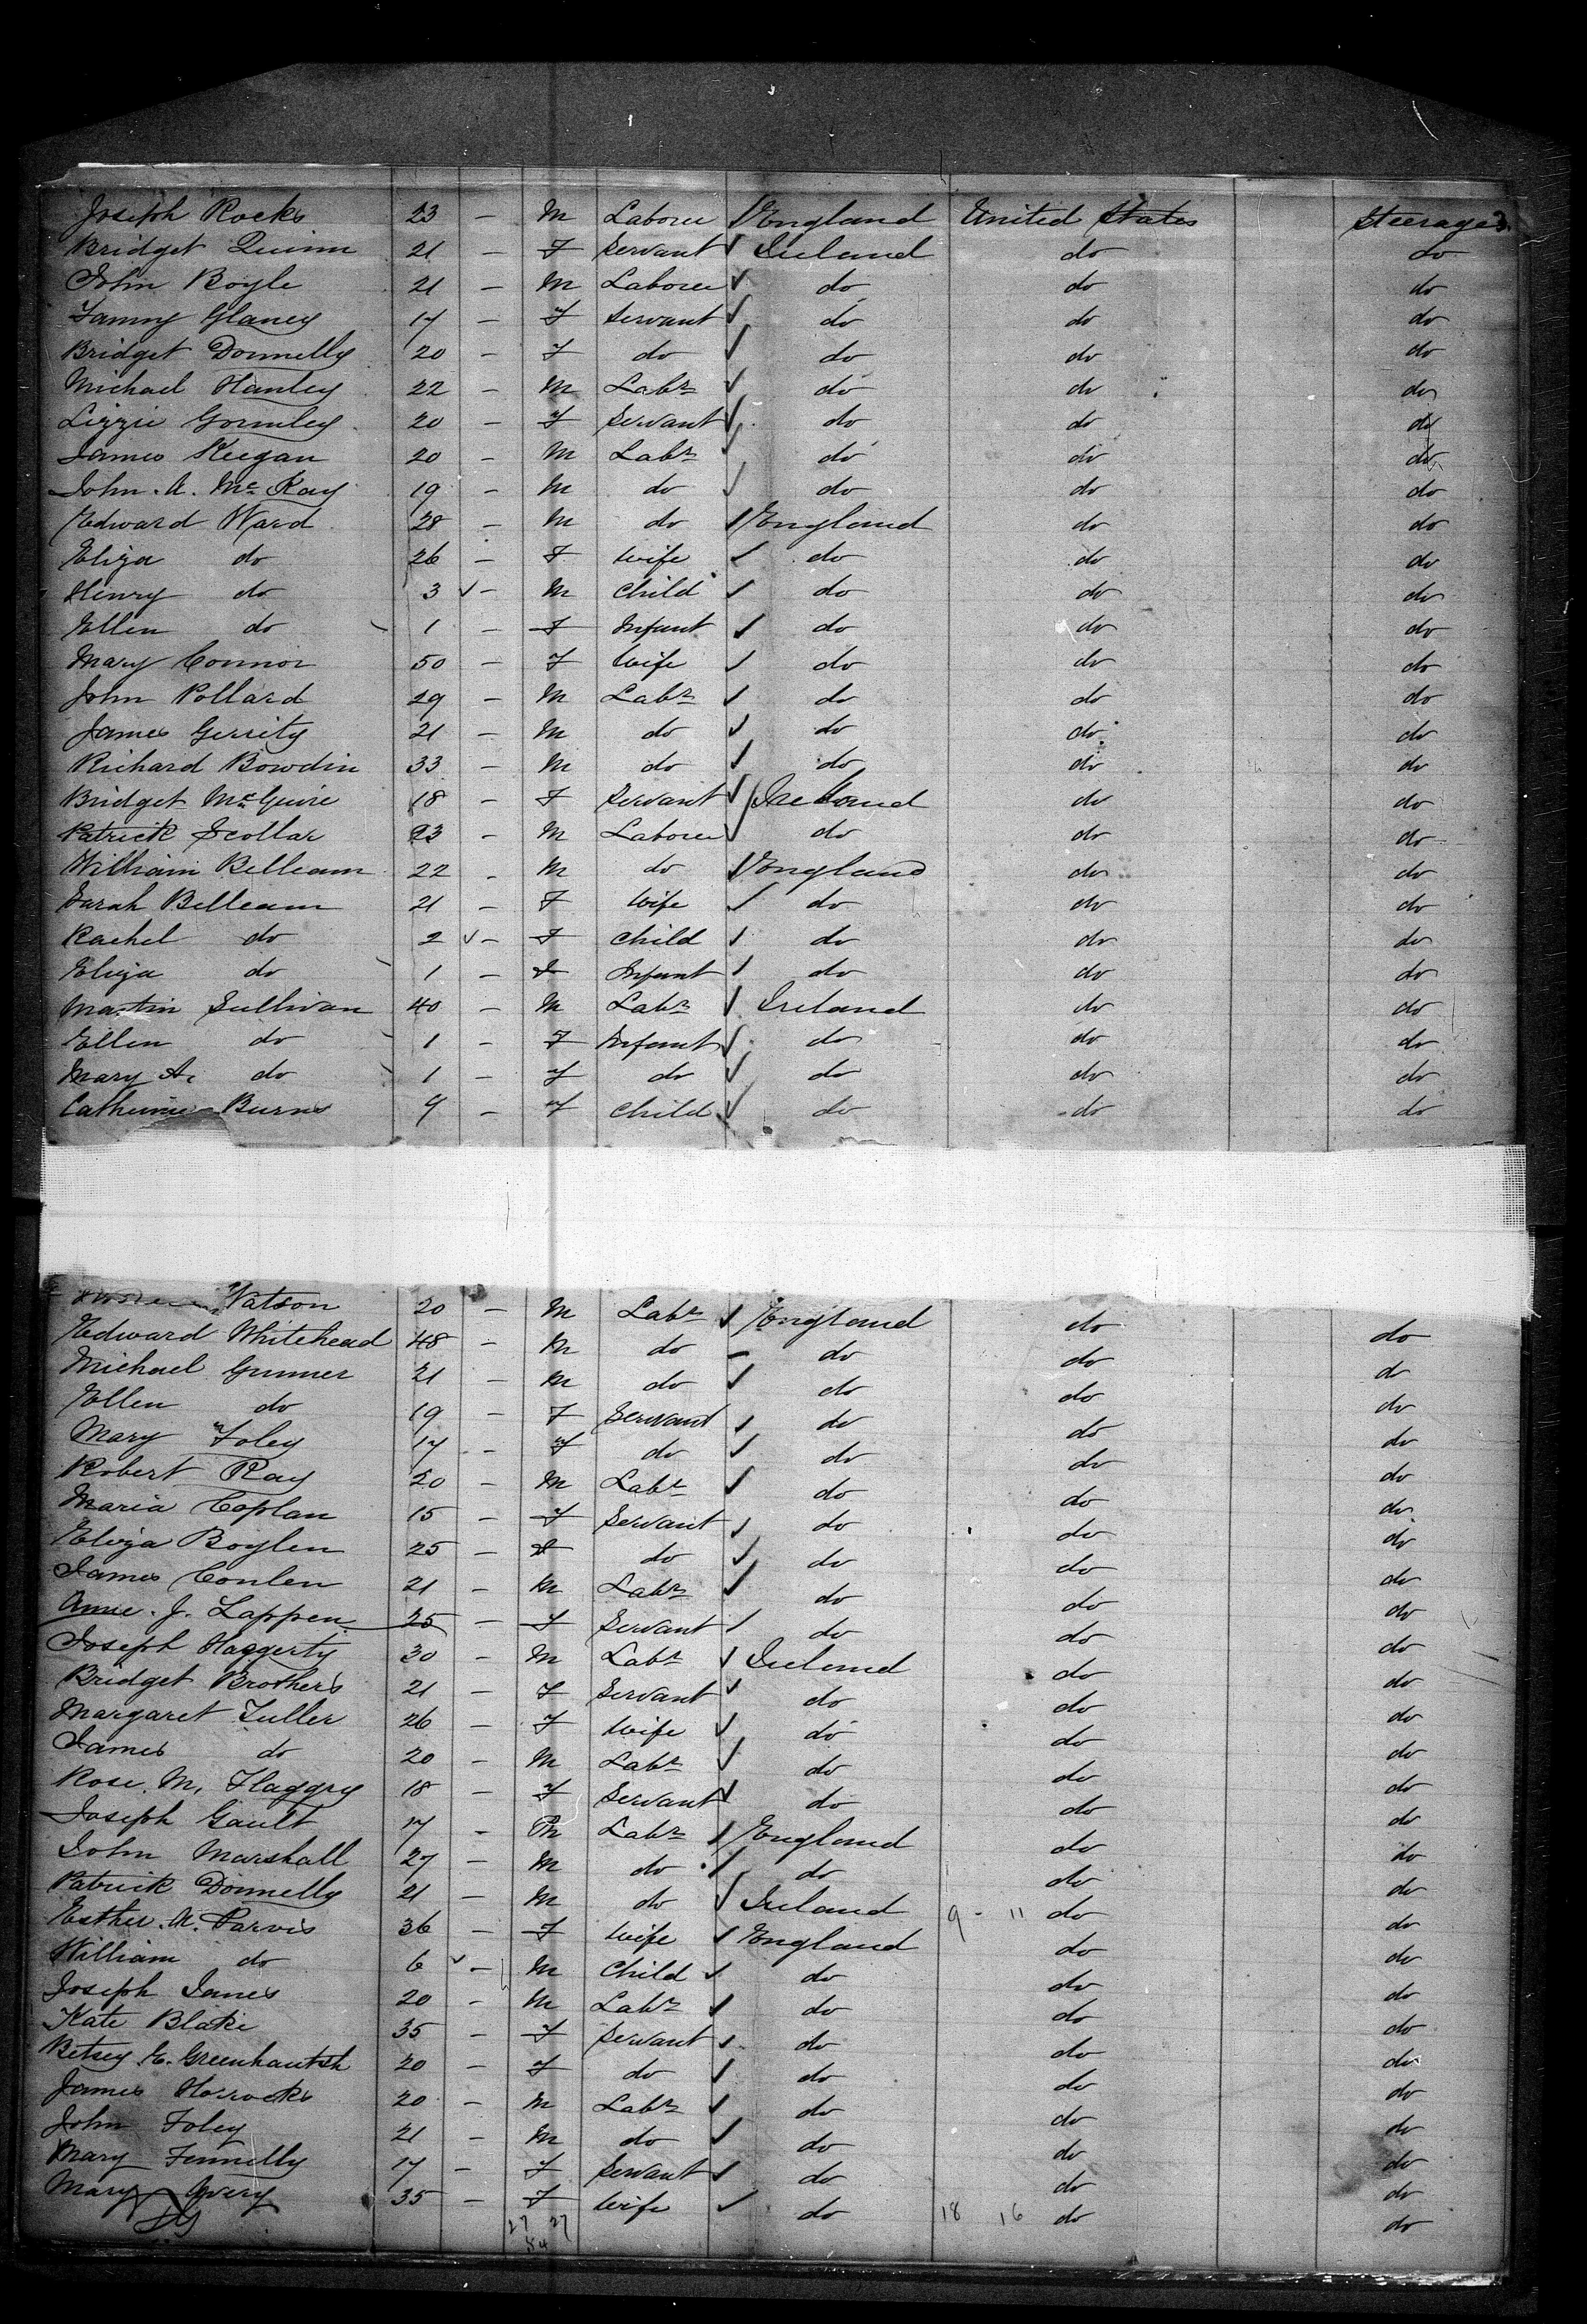 Joseph Rocks 23 - M Laborer England United States Steerage 3
Bridget Quinn 21 - F Servant Ireland do do
John Boyle 21 - M Laborer do do do
Fanny Glancy 17 - F Servant do do do
Bridget Donnelly 20 - F do do do do
Michael Hanley 22 - M Labr do do do
Lizzie Gormley 20 - F Servant do do do
James Keegan 20 - M Labr do do do
John. A. Mc Kay 19 - M do do do do
Edward Ward 28 - M do England do do
Eliza do 26 - F Wife do do do
Henry do 3 - M Child do do do
Ellen do 1 - F Infant do do do
Mary Connor 50 - F Wife do do do
John Pollard 29 - M Labr do do do
James Gerrity 21 - M do do do do
Richard Bowdin 33 - M do do do do
Bridget McGuire 18 - F Servant Ireland do do
Patrick Scollar 23 - M Laborer do do do
William Belleam 22 - M do England do do
Sarah Belleam 21 - F Wife do do do
Rachel do 2 - F Child do do do
Eliza do 1 - F Infant do do do
Martin Sullivan 40 - M Labr Ireland do do
Ellen do 1 - F Infant do do do
Mary A. do 1 - F do do do do
Catherine Burns 9 - F Child do do do
Watson 20 - M Labr England do do
Edward Whitehead 48 - M do do do do
Michael Gunner 21 - M do do do do
Ellen do 19 - F Servant do do do
Mary Foley 17 - F do do do do
Robert Ray 20 - M Labr do do do
Maria Coplan 15 - F Servant do do do
Eliza Boylen 25 - F do do do do
James Conlen 21 - M Labr do do do
Anne. J. Lappen 25 - F Servant do do do
Joseph Haggerty 30 - M Labr Ireland do do
Bridget Brothers 21 - F Servant do do do
Margaret Fuller 26 - F Wife do do do
James do 20 - M Labr do do do
Rose. M. Flaggry 18 - F Servant do do do
Joseph Gault 17 - M Labr England do do
John Marshall 27 - M do do do do
Patrick Donnelly 21 - M do Ireland 9 - 11 do do
Esther. A. Parvis 36 - F Wife England do do
William do 6 - M Child do do do
Joseph Janes 20 - M Labr do do do
Kate Blake 35 - F Servant do do do
Betsey E. Greenhautsh 20 - F do do do do
James Horrocks 20 - M Labr do do do
John Foley 21 - M do do do do
Mary Fennelly 17 - F Servant do do do
Mary Avery 35 - F Wife do 18 16 do do
27 27
54